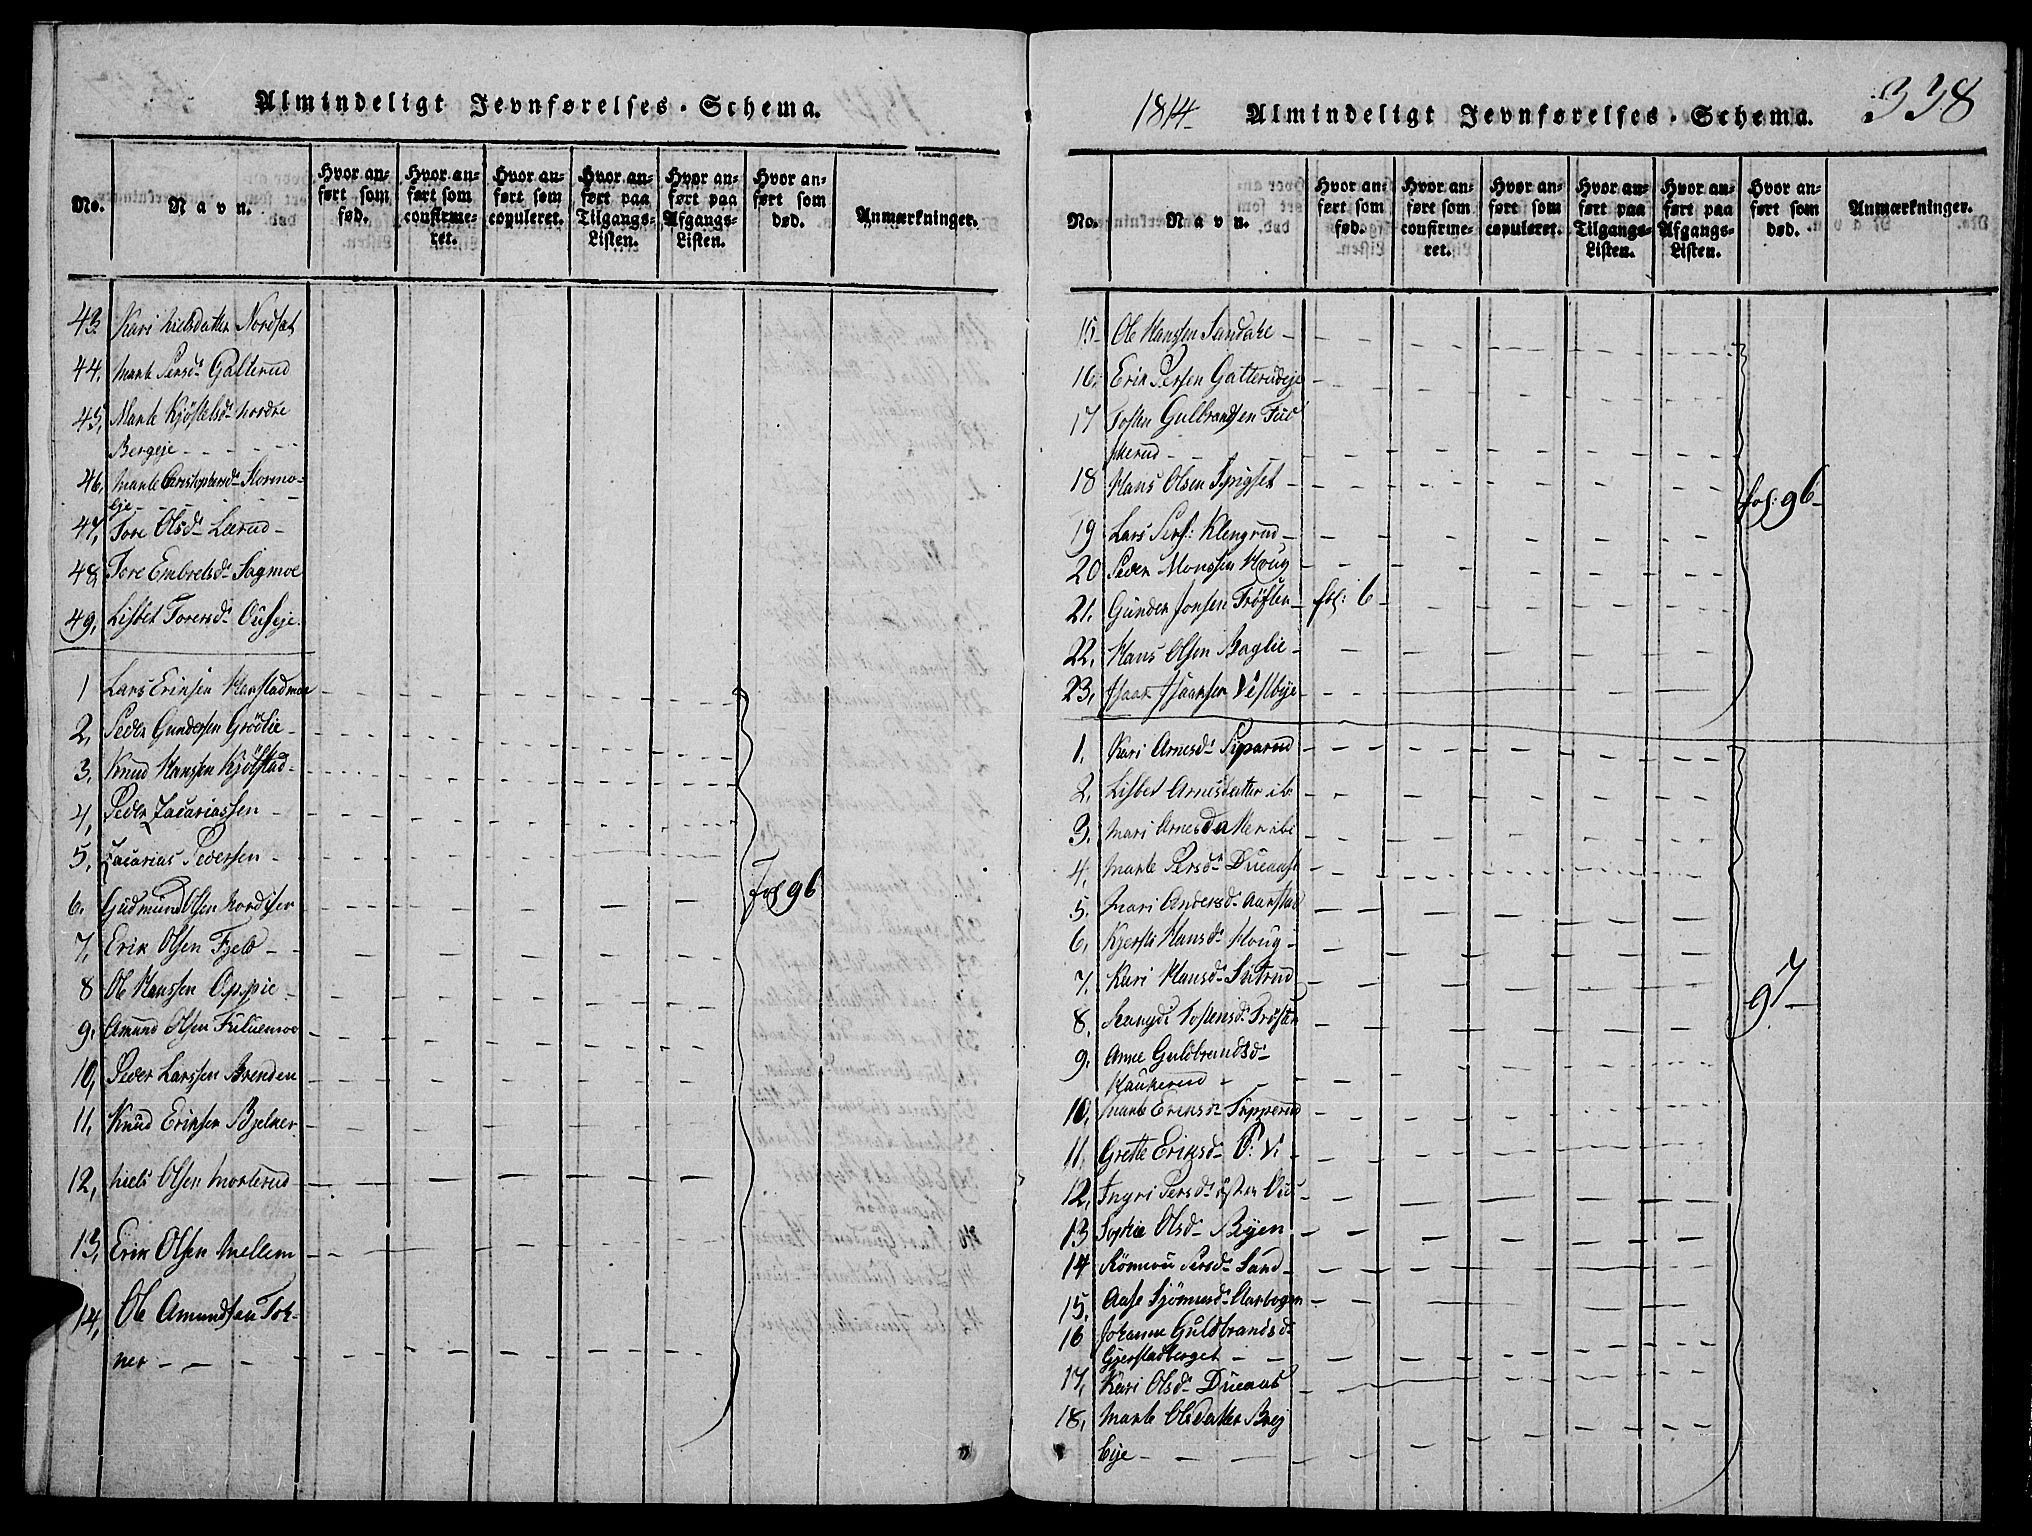 Almindeligt Jevnførelses-Schema.
No.
Navn.
Hvor anført som fød.
Hvor anført som confirmeret.
Hvor anført som copuleret.
Hvor anført paa Tilgangs-Listen.
Hvor anført paa Afgangs-Listen.
Hvor anført som død.
Anmærkninger.
43. Kari Nielsdatter Nordset
44, Marte Persd. Galterud
45, Marte Kjøstelsd. nordre
Bergeje
46, Marte Christophersd. Kormo-
eje
47, Tore Olsd. Lærud
48, Tore Embretsd. Sagmoe
49, Lisbet Torersd. Ouseje.
1 Lars Eriksen Hanstadmoe
2, Peder Gundersen Grødlie
3, Knud Hansen Kjølstad
4, Peder Zacariassen
5, Zacarias Pedersen
6. Gudmund Olsen
7, Erik Olsen Fjeld
8 Ole Hanssen Oppie
9, Amund Olsen
10, Peder Larssen Brenden
11, Knud Eriksen Bjelker
12, Niels Olsen Morterud
13, Erik Olsen Mellem
14, Ole Amundsen Tor-
ner
fol 96
1814
Almindeligt Jevnførelses-Schema.
338
No.
Navn.
Hvor anført som fød.
Hvor anført som confirmeret.
Hvor anført som copuleret.
Hvor anført paa Tilgangs-Listen.
Hvor anført paa Afgangs-Listen.
Hvor anført som død.
Anmærkninger.
15 Ole Hanssen Sandake
16, Erik Persen Galterudeje
17 Tosten Gulbrandsen Fuu
skerud
18 Hans Olsen Spigset
fol: 96
19 Lars Pers: Klengrud
20 Peder Monssen Houg
21, Gunder Jonsen Trøften fol: 6
22, Hans Olsen Baglie
23, Isaak Isaaksen Vestbye
1, Kari Arnesd. Siparud
2, Lisbet Arnesdatter ib
3, Mari Arnesdatter ibi
4, Marte Persd. Dueaas
5, Mari Andersd. Aanstad
6, Kjersti Hansd. Houg
7, Kari Hansd.
97
8, Rangdi Tostensd. Trøften
9, Anne Guldbrandsd.
Haukerud
10, Marte Eriksd. Topperud
11, Grette Eriksd.
12, Ingri Persd. østen Aae
13 Sophie Olsd. Byen
14 Rønnou Persd. Sand
15, Aase Bjørnersd. Aasbogen
16 Johanne Guldbrandsd.
Gjerstadberget
17, Kari Olsd. Dueaas
18, Marte Olsdatter Bref
bye